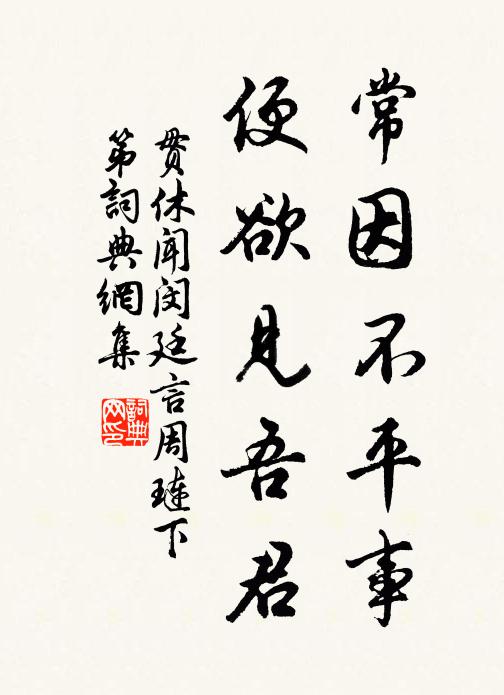 常因不平事
便欲見吾君
貫休聞閔廷言周璉下
第詞典網集
詞典网印